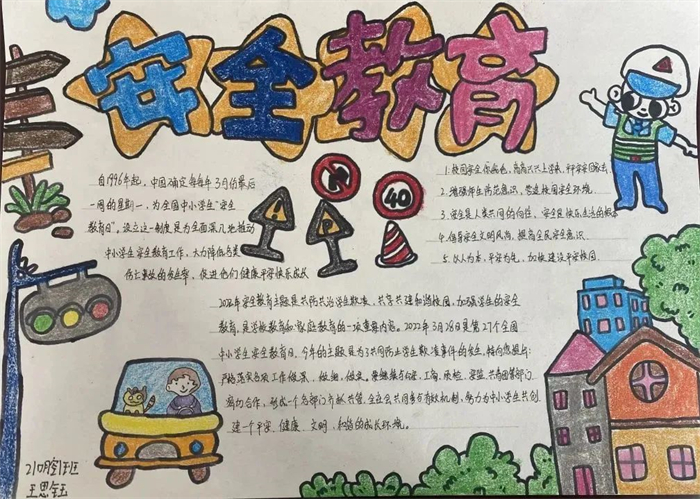 安全教育
自1996年起，中国确定每年3月份最后
一周的星期一，为全国中小学生"安全
教育日"，设立这一制度是为全面深入地推动
中小学生安全教育工作，大力降低各类
伤亡事故的发生率，促进他们健康平安快乐成长
40
1.校园安全你我他，高高兴兴上学来，平平安安回家去
2.增强师生防范意识，营造校园安全环境.
3.安全是人类共同的向往，安全是快乐生活的根本
4.倡导安全文明风尚，提高全民安全意识.
5.以人为本，平安为先，加快建设平安校园.
安全教育主题是共防共治学生欺凌，共享共建和谐校园，加强学生的安全
教育，是学校教育和家庭教育的一项重要内容。2022年3月28日是第27个全国
中小学生安全教育日，今年的主题是为了共同防止学生欺凌事件的发生，
严格落实各项工作做深、做细、做实，
密切合作，形成一个各部门齐抓共管，全社会共同参与有效机制，努力为中小学生共创
建一个平安、健康、文明、和谐的成长环境。
王思钰